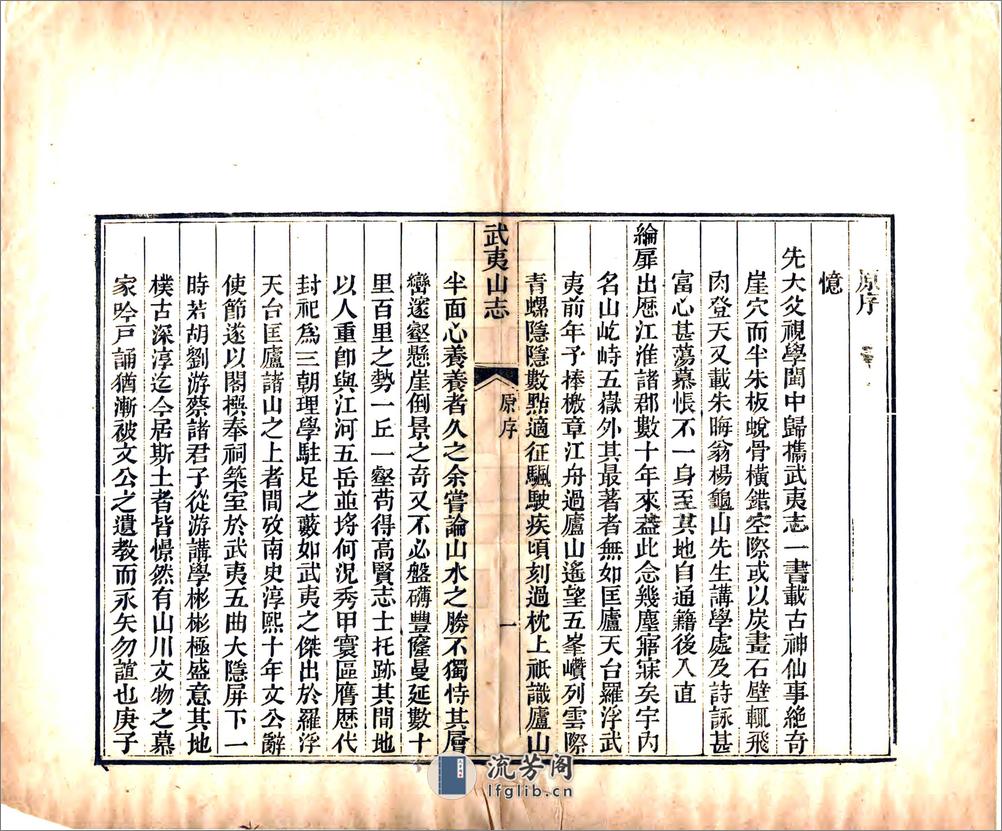 原序
憶
先大父視學閩中歸攜武夷志一書載古神仙事絶奇
崖穴而半朱板蛻骨橫錯空際或以炭畫石壁輒飛
肉登天又載朱晦翁楊龜山先生講學處及詩詠甚
富心甚蕩慕悵不一身至其地自通籍後入直
綸扉出歴江淮諸郡數十年來葢此念幾塵寤寐矣宇內
名山屹峙五嶽外其最著者無如匡廬天台羅浮武
夷前年予捧檄章江舟過廬山遙望五峯巑列雲際
青螺隱隱數點適征颿駛疾頃刻過枕上祇識廬山
武夷山志
原序
一
半面心養養者久之余嘗論山水之勝不獨恃其層
巒邃壑懸崖倒景之奇又不必盤礴豐窿曼延數十
里百里之勢一丘一壑苟得高賢志士托跡其間地
以人重卽與江河五岳並埒何況秀甲寰區膺歴代
封祀爲三朝理學駐足之藪如武夷之傑出於羅浮
天台匡廬諸山之上者間攷南史淳熙十年文公辭
使節遂以閣橖奉祠築室於武夷五曲大隱屏下一
時若胡劉游蔡諸君子從游講學彬彬極盛意其地
樸古深淳迄今居斯土者皆憬然有山川文物之慕
家吟戸誦猶漸被文公之遺教而永矢勿諠也庚子
流芳阁
lfglib.cn